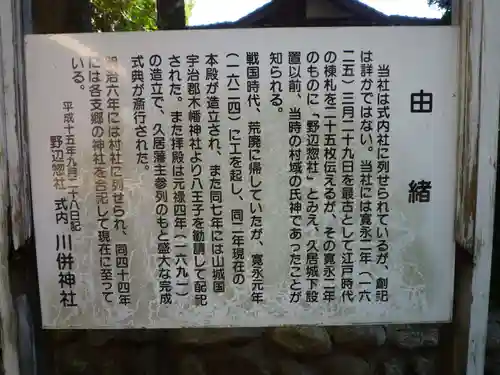 由緒
当社は式内社に列せられているが、創記
は詳かではない。当社には寛永二年(一六
二五)三月二十九日を最古として江戸時代
の棟札を二十五枚伝えるが、その寛永二年
のものに「野辺惣社」とみえ、久居城下設
置以前、当時の村域の氏神であったことが
知られる。
戦国時代、荒廃に帰していたが、寛永元年
(一六二四)に工を起し、同二年現在の
本殿が造立され、また同七年には山城国
宇治郡木幡神社より八王子を勧請して配祀
された。また拝殿は元禄四年(一六九一)
の造立で、久居藩主参列のもと盛大な完成
式典が斎行された。
明治六年には村社に列せられ、同四十四年
には各支郷の神社を合祀して現在に至って
いる。
平成十五年九月二十八日記
野辺惣社 式内 川併神社